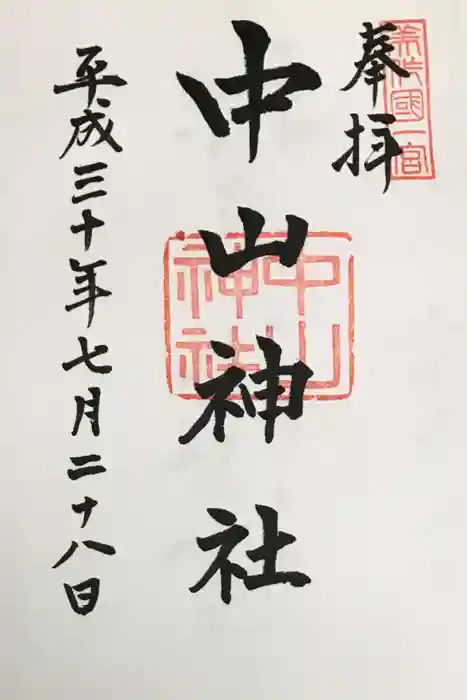 奉拝
美作國一宮
中山神社
中山神社
平成三十年七月二十八日